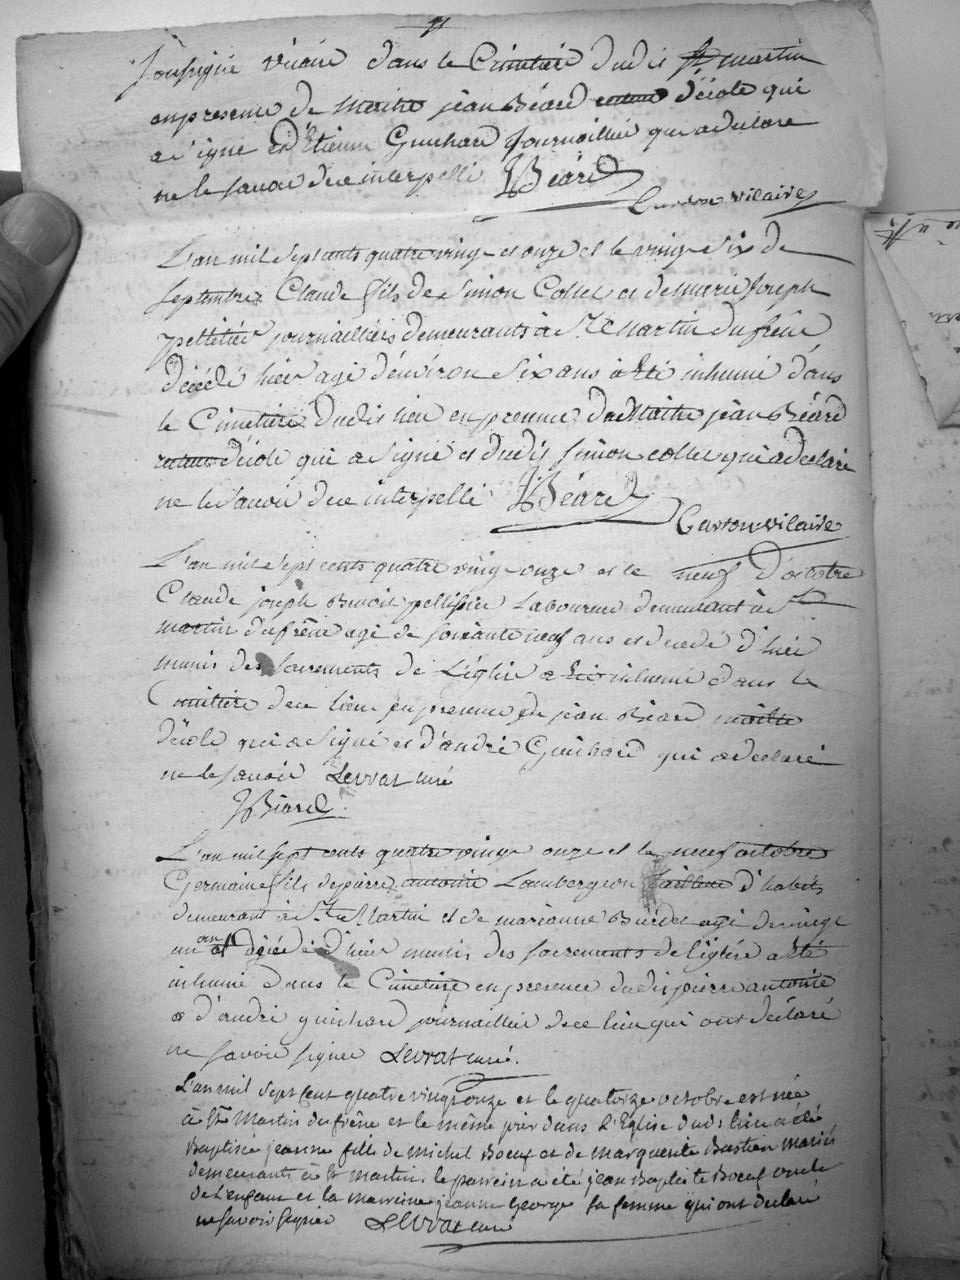 soussigné vicaire dans le Cimetiére dudit St martin
en presence de Maitre jean Béard d'école qui
a signe et d'Etienne Guichard Journaillier qui a declare
ne le savoir de ce interpellé JBéard
Curton vicaire
L'an mil sept cents quatre vingt et onze et le vingt six de
septembre Claude fils de Simon Collet et de marie Joseph
pelletier journailliers demeurants à St Martin du frêne
décédé hier agé d'environ six ans a été inhumé dans
le Cimetiére dudit lieu en presence de Maitre jean Béard
d'école qui a signé et dudit simon collet qui a declaré
ne le savoir de ce interpellé JBéard
Curton vicaire
L'an mil sept cents quatre vingt onze et le neuf d'octobre
Claude joseph Benoit pellissier Laboureur demeurant à St
martin du frêne agé de soixante neuf ans et decedé d'hier
munis des sacrements de l'église a été inhumé dans le
Cimitiére de ce lieu en presence de jean Béard maitre
d'école qui a signé et d'andré Guichard qui a declaré
ne le savoir Levrat curé
JBéard
L'an mil sept cents quatre vingt onze et le neuf octobre
Germain fils de pierre antoine Lambergeon tailleur d'habits
demeurant à St Martin et de marianne Burdet agé de vingt
un an décédé d'hier munis des sacrements de l'églisé a été
inhumé dans le Cimetiére en presence dudit pierre antoine
et d'andré guichard journaillier de ce lieu qui ont declaré
ne savoir signer Levrat curé.
L'an mil sept cent quatre vingt onze et le quatorze octobre est née
à St Martin du frêne et le même jour dans l'Eglise dudit lieu a été
Baptisée jeanne fille de michel Boeuf et de marguerite Bastien mariés
demeurants à St martin, le parrein a été jean Baptiste Boeuf oncle
de l'enfant et la marreine jeanne George sa femme qui ont declaré
ne savoir signer Levrat curé